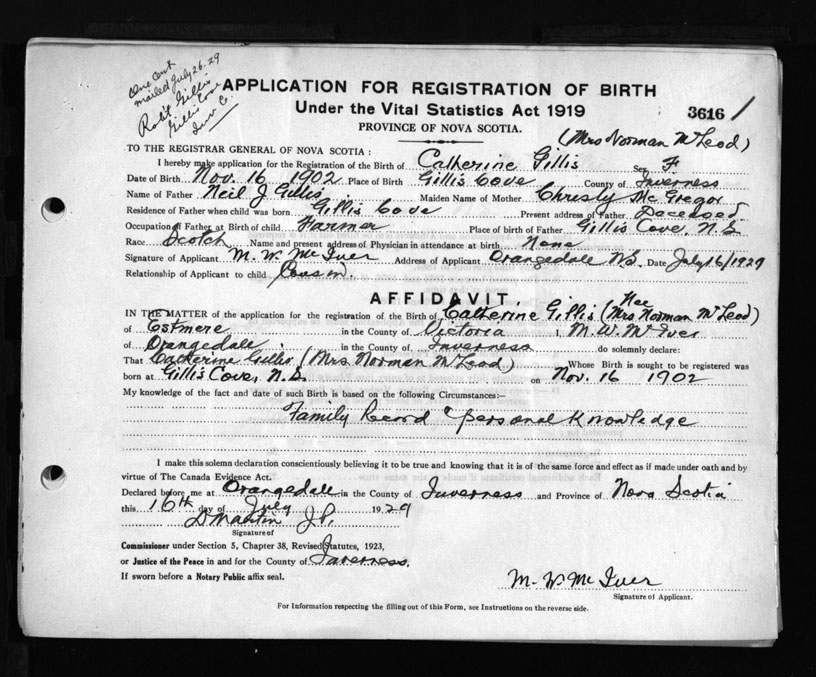 One Cert
mailed July 26-29
Robt Gillis
Gillis Cove
Inv Co.
APPLICATION FOR REGISTRATION OF BIRTH
Under the Vital Statistics Act 1919
3616 /
PROVINCE OF NOVA SCOTIA.
(Mrs Norman McLeod)
TO THE REGISTRAR GENERAL OF NOVA SCOTIA:
I hereby make application for the Registration of the Birth of Catherine Gillis Sex F
Date of Birth Nov. 16 1902 Place of Birth Gillis Cove County of Inverness
Name of Father Neil J Gillis Maiden Name of Mother Christy McGregor
Residence of Father when child was born Gillis Cove Present address of Father Deceased
Occupation of Father at Birth of child Farmer Place of birth of Father Gillis Cove, N.S.
Race Scotch Name and present address of Physician in attendance at birth None
Signature of Applicant M. W. McIver Address of Applicant Orangedale N.S. Date July 16/1929
Relationship of Applicant to child Cousin.
AFFIDAVIT.
IN THE MATTER of the application for the registration of the Birth of Catherine Gillis (Nee Mrs Norman McLeod)
of Estmere in the County of Victoria I, M. W. McIver
of Orangedale in the County of Inverness do solemnly declare:
That Catherine Gillis (Mrs Norman McLeod) Whose Birth is sought to be registered was
born at Gillis Cove, N.S. on Nov. 16 1902
My knowledge of the fact and date of such Birth is based on the following Circumstances:—
Family Record & personal Knowledge
I make this solemn declaration conscientiously believing it to be true and knowing that it is of the same force and effect as if made under oath and by
virtue of The Canada Evidence Act.
Declared before me at Orangedale in the County of Inverness and Province of Nova Scotia
this 16th day of July 1929
D Martin J.P.
Signature of
Commissioner under Section 5, Chapter 38, Revised Statutes, 1923,
or Justice of the Peace in and for the County of Inverness.
If sworn before a Notary Public affix seal.
M. W. McIver
Signature of Applicant.
For Information respecting the filling out of this Form, see Instructions on the reverse side.